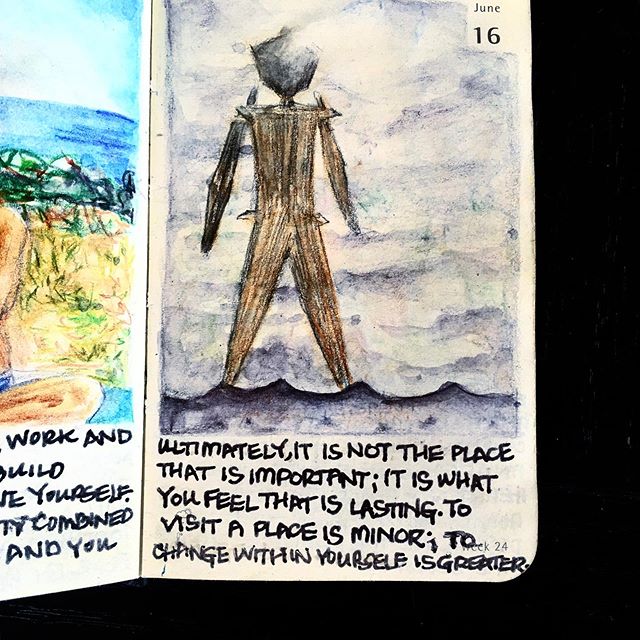 , WORK AND
BUILD
VE YOURSELF.
TY COMBINED
AND YOU
June
16
ULTIMATELY, IT IS NOT THE PLACE
THAT IS IMPORTANT; IT IS WHAT
YOU FEEL THAT IS LASTING. TO
VISIT A PLACE IS MINOR; TO
Week 24
CHANGE WITHIN YOURSELF IS GREATER.